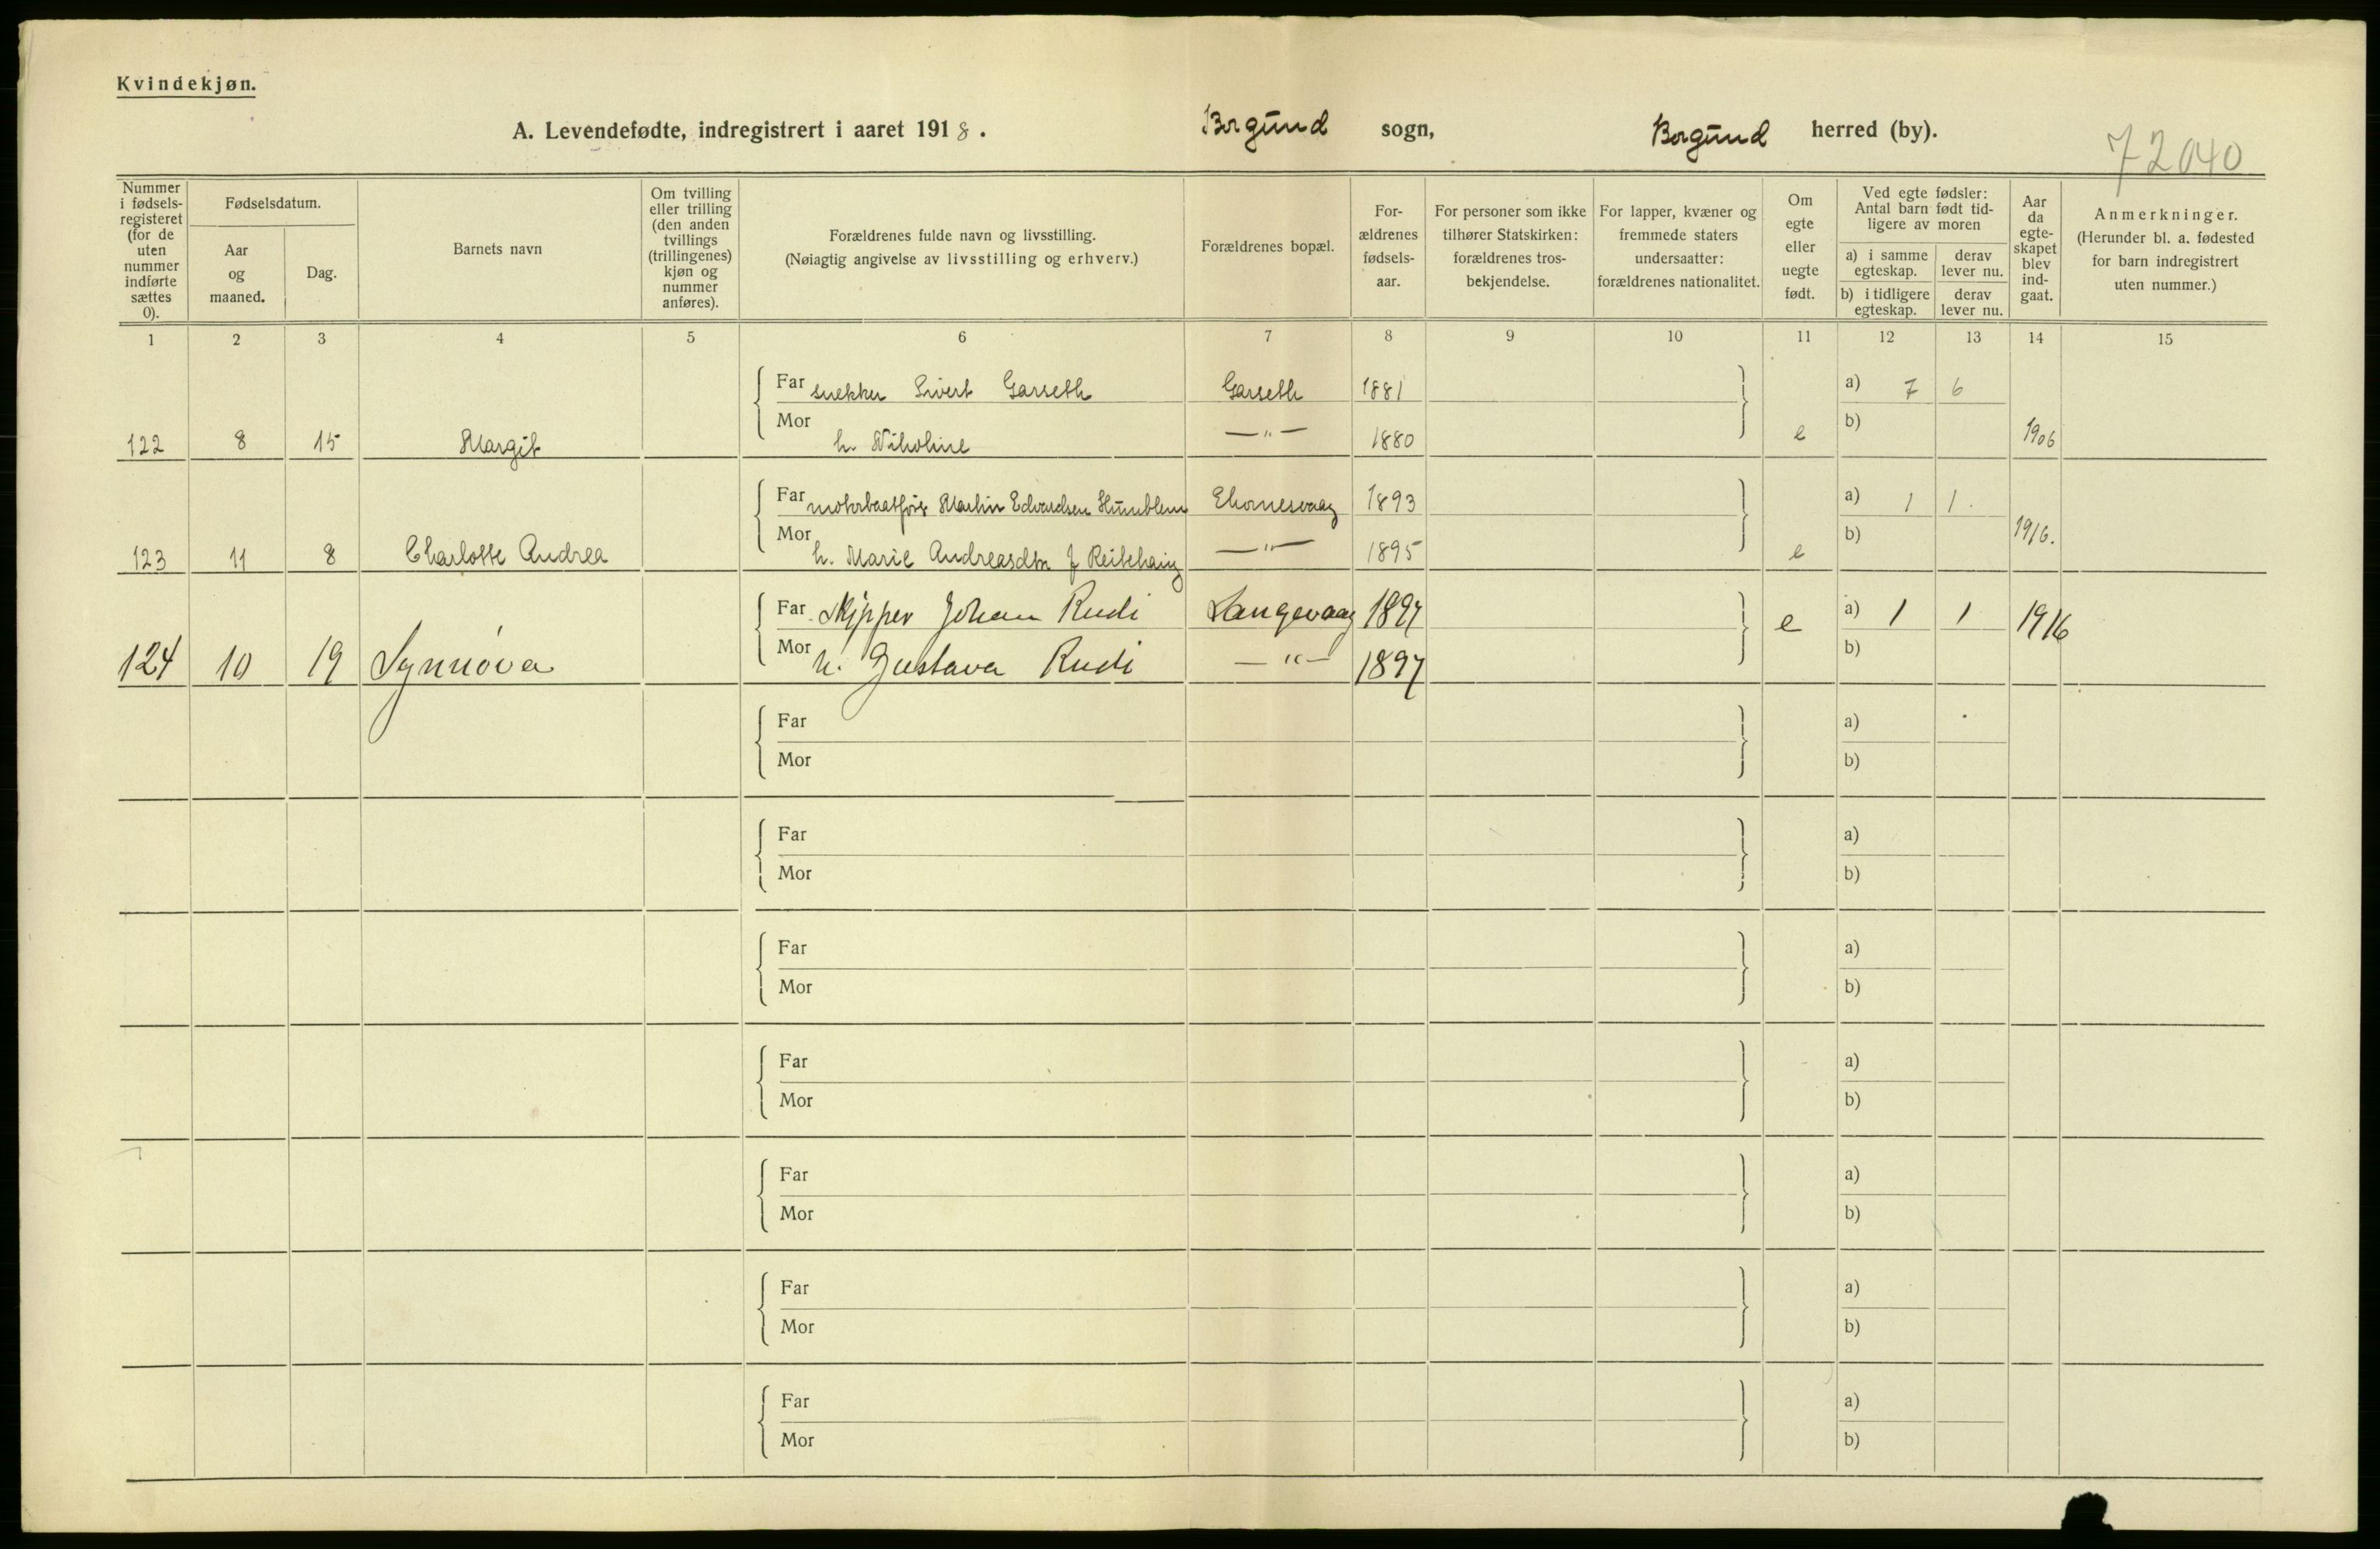 Kvindekjøn.
A. Levendefødte, indregistrert i aaret 1918. Borgund sogn, Borgund herred (by).
72040
Nummer i fødselsregisteret (for de uten nummer indførte sættes 0).
Fødselsdatum.
Aar og maaned.
Dag.
Barnets navn
Om tvilling eller trilling (den anden tvillings (trillingenes) kjøn og nummer anføres).
Forældrenes fulde navn og livsstilling.
(Nøiagtig angivelse av livsstilling og erhverv.)
Forældrenes bopæl.
Forældrenes fødselsaar.
For personer som ikke tilhører Statskirken: forældrenes trosbekjendelse.
For lapper, kvæner og fremmede staters undersaatter: forældrenes nationalitet.
Om egte eller uegte født.
Ved egte fødsler: Antal barn født tidligere av moren
a) i samme egteskap. derav lever nu.
b) i tidligere egteskap. derav lever nu.
Aar da egteskapet blev indgaat.
Anmerkninger.
(Herunder bl. a. fødested for barn indregistrert uten nummer.)
1 2 3 4 5 6 7 8 9 10 11 12 13 14 15
Far snekker Sivert Garseth Garseth 1881 a) 7 6
122 8 15 Margit Mor h. Nikoline —"— 1880 e b) 1906
Far motorbaatfører Martin Edvardsen Humblem 1893 a) 1 1
123 11 8 Charlotte Andrea Mor h. Marie Andreasdtr f Reitehaug —"— 1895 e b) 1916.
Far Skipper Johan Rudi Langevaag 1897 e a) 1 1 1916
124 10 19 Synnöva Mor h. Gustava Rudi —"— 1897 b)
Far a)
Mor b)
Far a)
Mor b)
Far a)
Mor b)
Far a)
Mor b)
Far a)
Mor b)
Far a)
Mor b)
Far a)
Mor b)